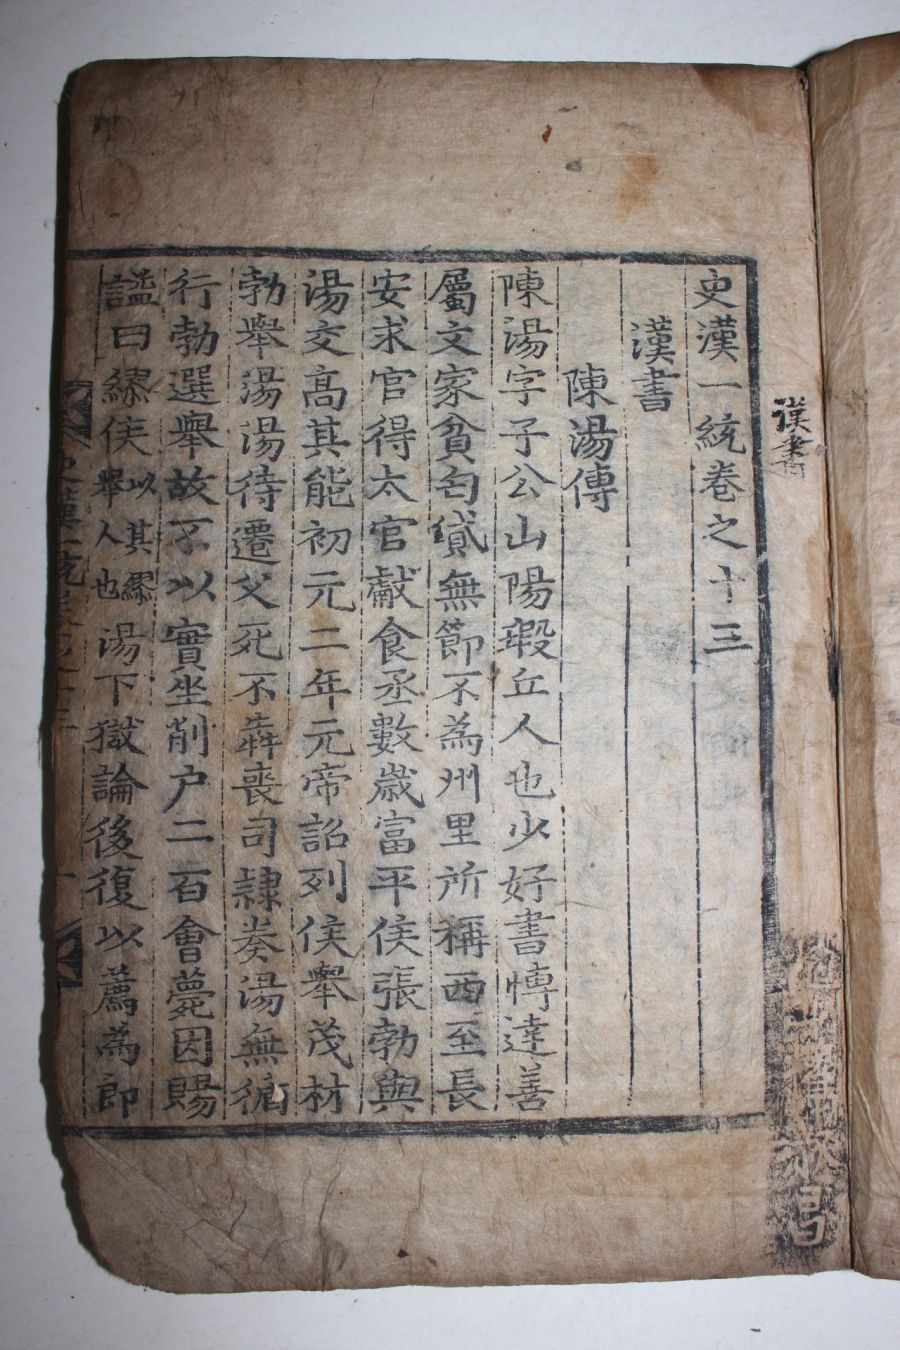 史漢一統卷之十三
漢書
陳湯傳
陳湯字子公山陽瑕丘人也少好書博達善
屬文家貧匄貸無節不為州里所稱西至長
安求官得太官獻食丞數歲富平侯張勃與
湯交高其能初元二年元帝詔列侯舉茂材
勃舉湯湯待遷父死不犇喪司隷奏湯無循
行勃選舉故不以實坐削户二百會薨因賜
諡曰繆侯以其繆舉人也湯下獄論後復以薦為郎
漢書